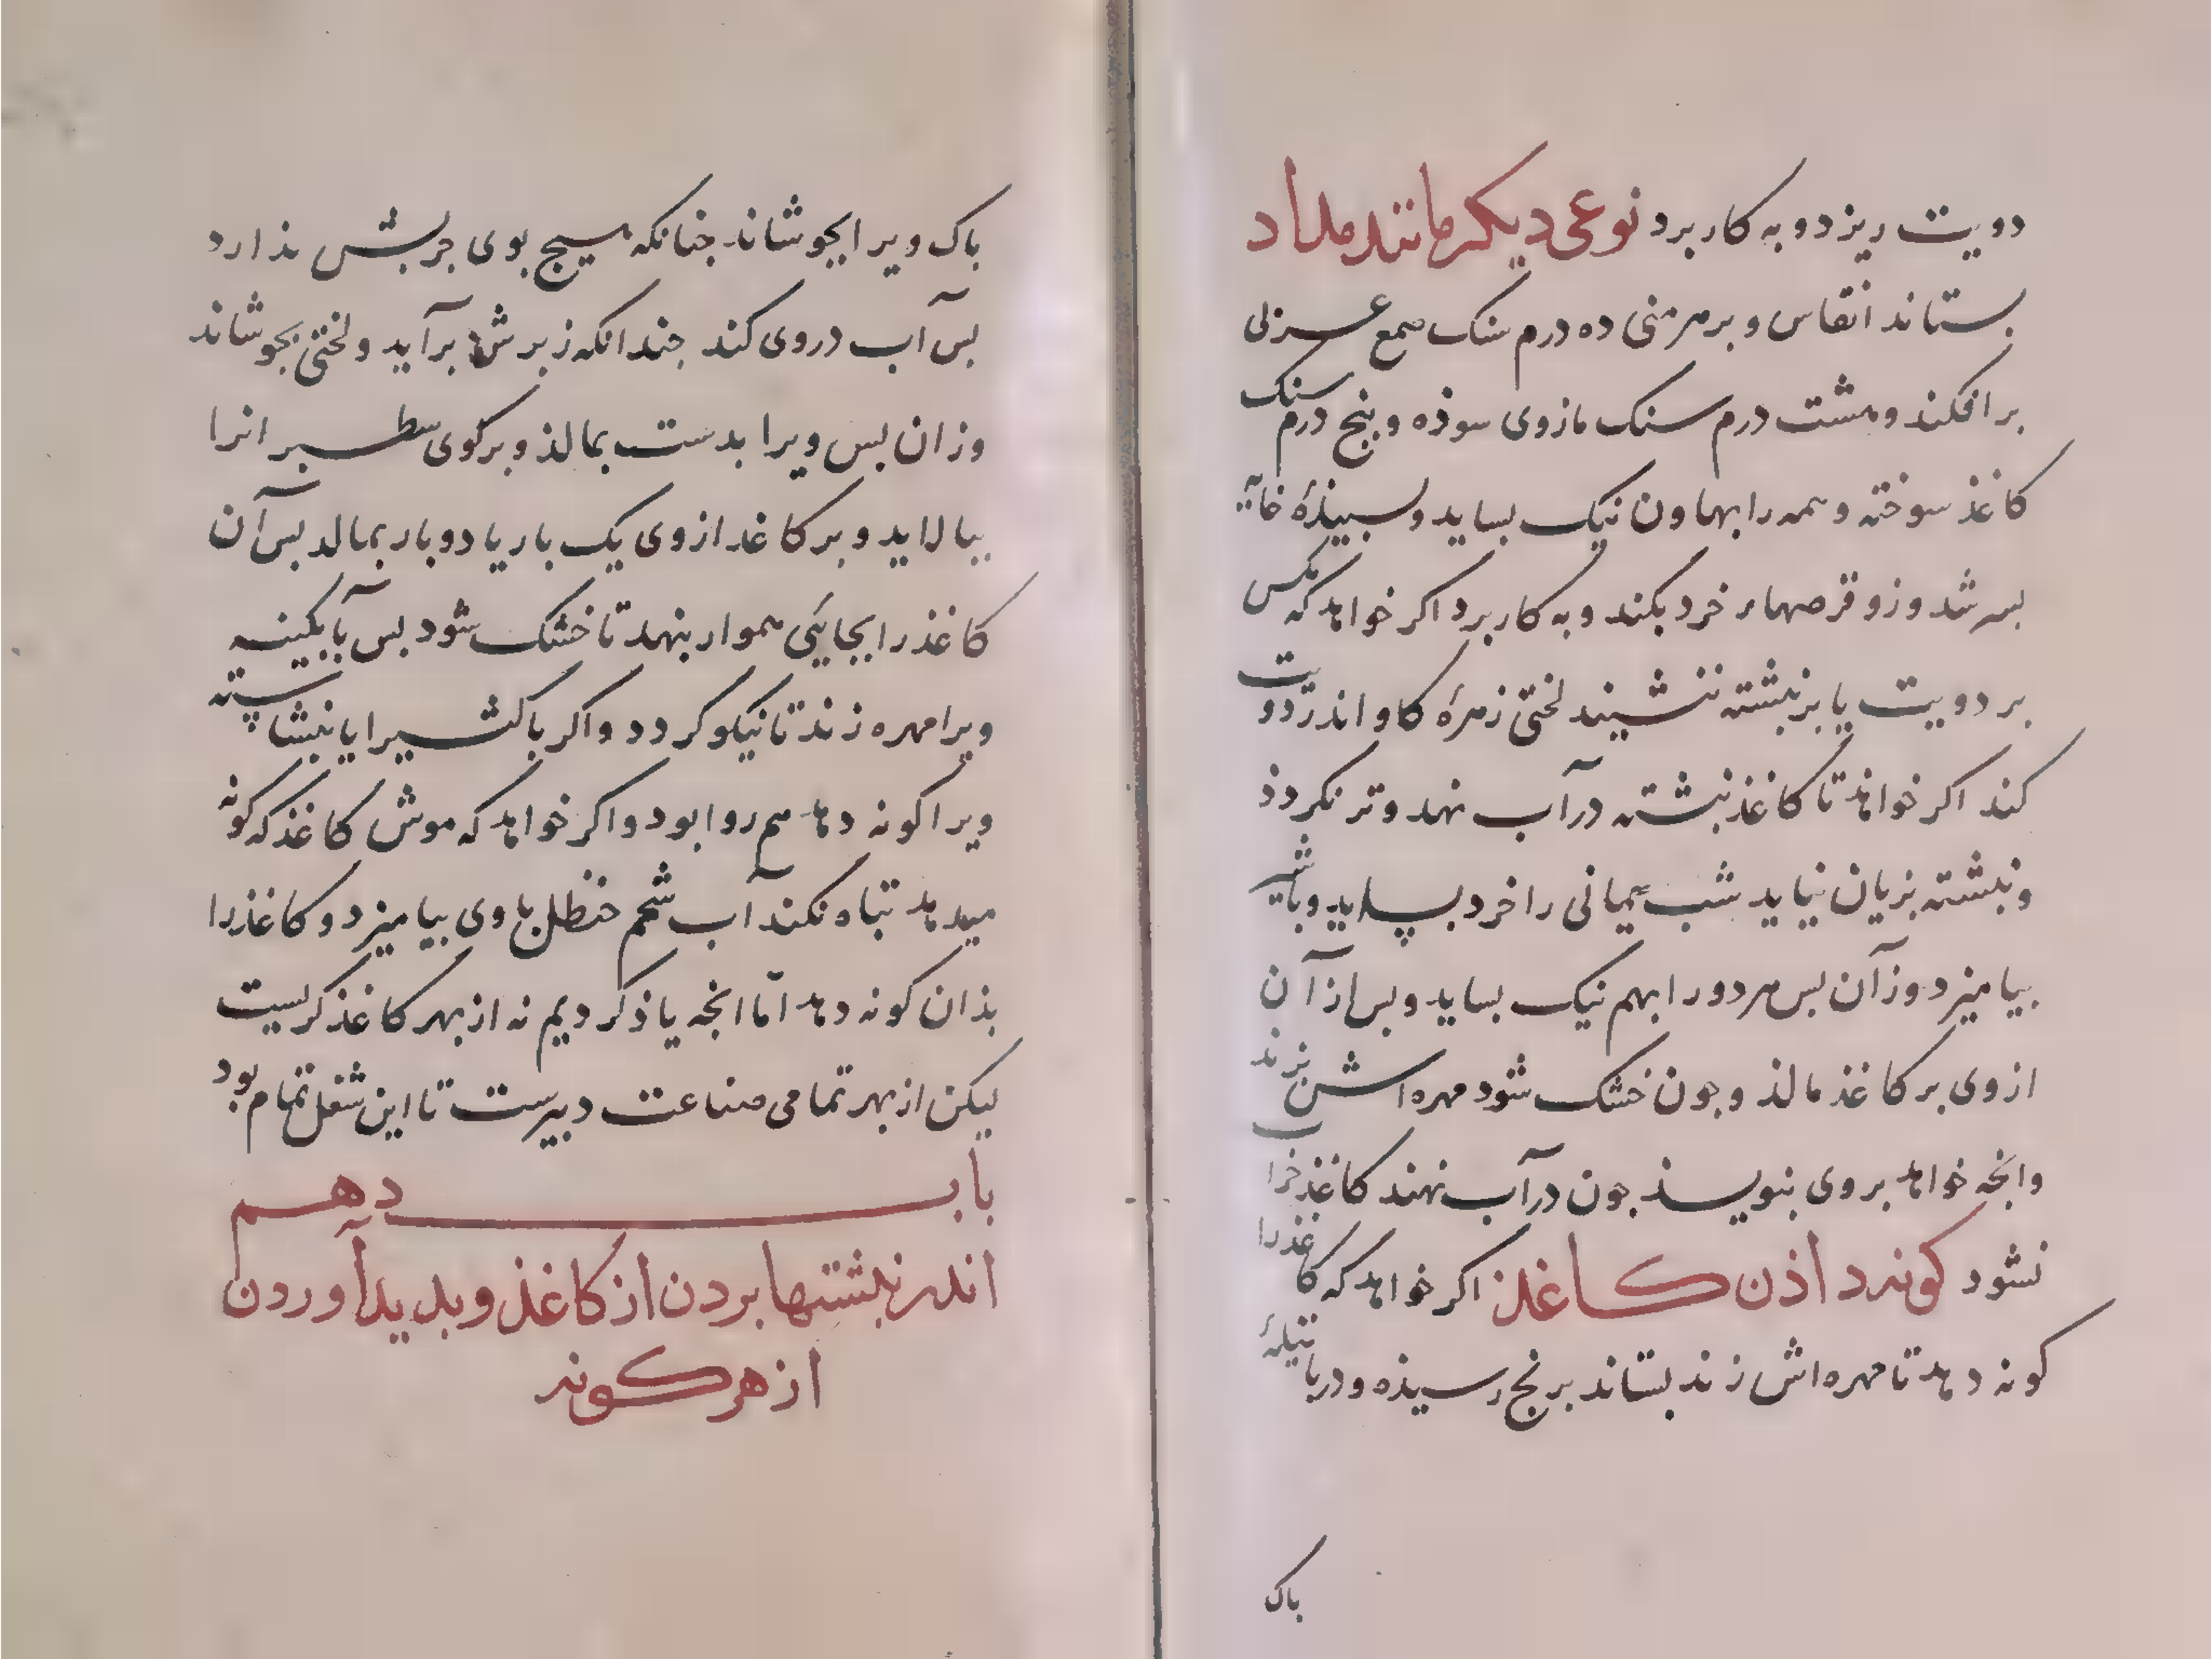 دویت ریزد و به کار برد نوعی دیکر مانند مداد
بستاند انقاس و بر هر منی ده درم سنک صمغ عربی
برافکند و هشت درم سنک مازوی سوذه و پنج درم سنک
کاغذ سوخته و همه را بهاون نیک بساید و سبیذهٔ خایه
بسرشد وزو قرصهاء خرد بکند و به کار برد اکر خواهد که مکس
بر دویت یا بر نبشته ننشیند لختی زهرهٔ کاو اندر دویت
کند اکر خواهذ تا کاغذ نبشته در آب نهد و تر نکردذ
و نبشته بزیان نیاید شب یمانی را خرد بساید و با شیر
بیامیزد وز آن بس هر دو را بهم نیک بساید و بس از آن
از وی بر کاغذ مالذ و جون خشک شود مهره اش بزند
وانجه خواهد بر وی بنویسذ جون در آب نهند کاغذ خراب
نشود کونه داذن کاغذ اکر خواهد که کاغذ را
کونه دهد تا مهره اش زند بستاند برنج رسیذه و در باتیلهٔ
باک
باک ویرا بجوشاند جنانکه هیج بوی جربش نذارد
بس آب در وی کند جندانکه زبرش برآید و لختی بجوشاند
وزان بس ویرا بدست بمالذ و برکوی سطبر انرا
ببالاید و بر کاغد از وی یک بار یا دو بار بمالد بس آن
کاغذ را بجایئی هموار بنهد تا خشک شود بس بآبکینه
ویرا مهره زند تا نیکو کردد و اکر با کثیرا یا نبشاسته
ویرا کونه دهد هم روا بود و اکر خواهد که موش کاغذ که کونه
میدهد تباه نکند آب شحم حنظل با وی بیامیزد و کاغذ را
بذان کونه دهد امّا انجه یاذ کردیم نه از بهر کاغذ کریست
لیکن از بهر تمامی صناعت دبیرست تا این شغل تمام بود
باب دهم
اندر نبشتها بردن از کاغذ و بدید آوردن
از هر کونه